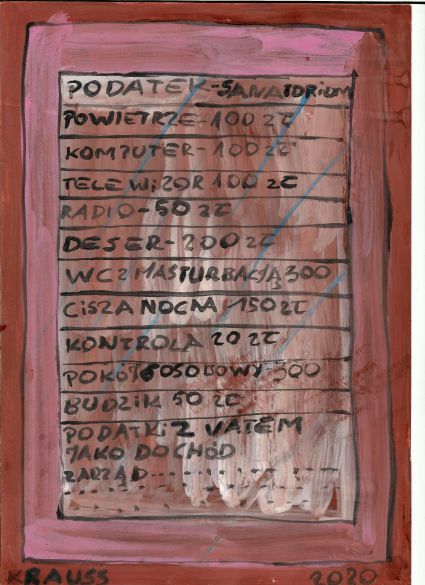 PODATEK-SANATORIUM
POWIETRZE-100 ZŁ
KOMPUTER-100 ZŁ
TELEWIZOR 100 ZŁ
RADIO-50 ZŁ
DESER-200 ZŁ
WC Z MASTURBACJĄ 300
CISZA NOCNA 150 ZŁ
KONTROLA 20 ZŁ
POKÓJ 6 OSOBOWY-300
BUDZIK 50 ZŁ
PODATKI Z VATEM
JAKO DOCHÓD
ZARZĄD
KRAUSS 2020